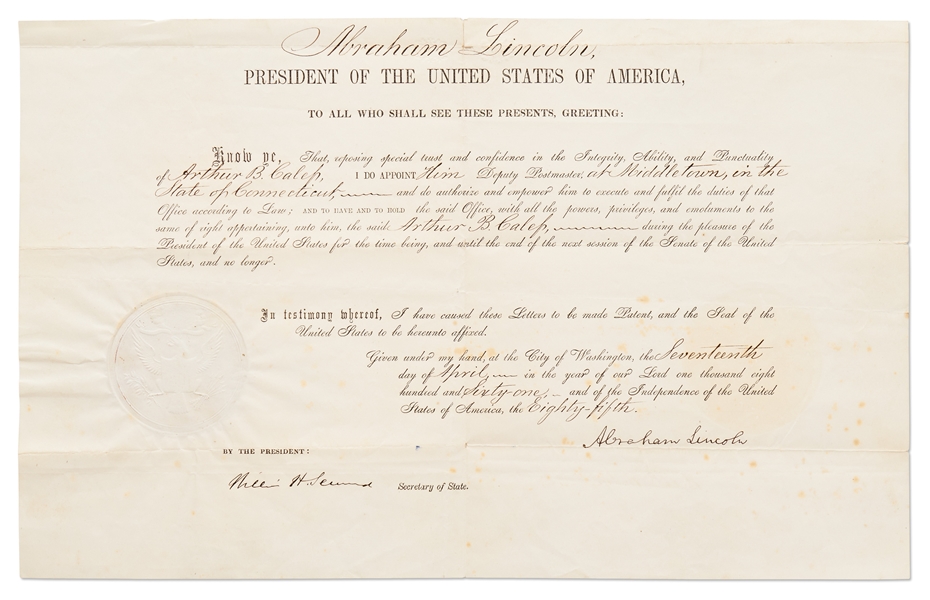 Abraham Lincoln,
PRESIDENT OF THE UNITED STATES OF AMERICA,
TO ALL WHO SHALL SEE THESE PRESENTS, GREETING:
Know ye, That, reposing special trust and confidence in the Integrity, Ability, and Punctuality
of Arthur B. Calef, I DO APPOINT Him Deputy Postmaster, at Middletown, in the
State of Connecticut, and do authorize and empower him to execute and fulfil the duties of that
Office according to Law; AND TO HAVE AND TO HOLD the said Office, with all the powers, privileges, and emoluments to the
same of right appertaining, unto him, the said Arthur B. Calef, during the pleasure of the
President of the United States for the time being, and until the end of the next session of the Senate of the United
States, and no longer.
In testimony whereof, I have caused these Letters to be made Patent, and the Seal of the
United States to be hereunto affixed.
Given under my hand, at the City of Washington, the Seventeenth
day of April, in the year of our Lord one thousand eight
hundred and Sixty-one, and of the Independence of the United
States of America, the Eighty-fifth.
Abraham Lincoln
BY THE PRESIDENT:
William H Seward Secretary of State.